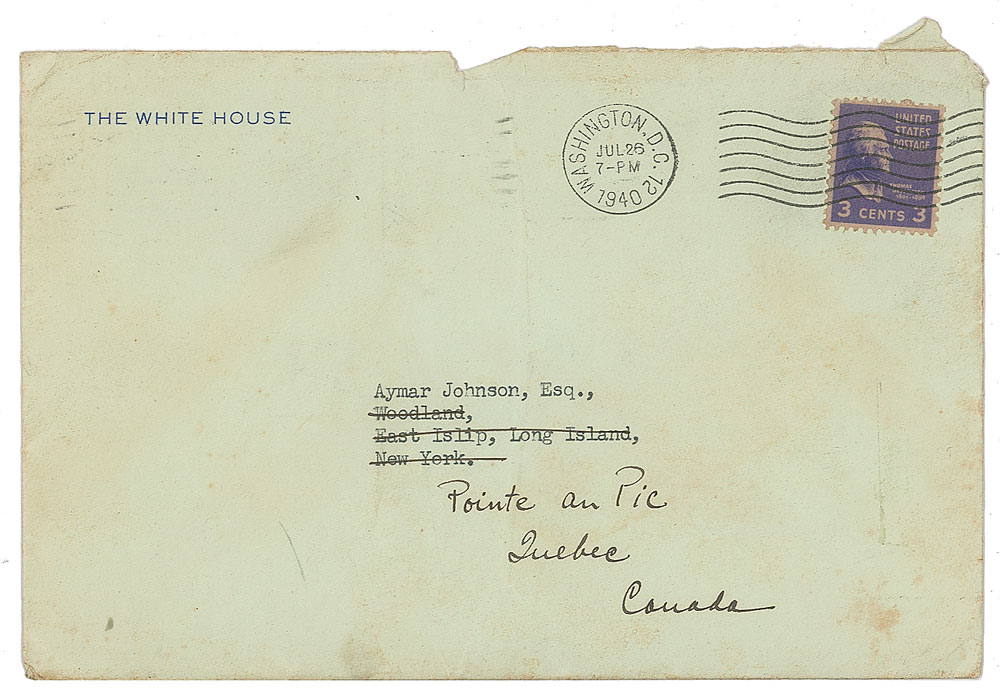 THE WHITE HOUSE
WASHINGTON, D.C. 12
JUL 26
7-PM
1940
UNITED
STATES
POSTAGE
THOMAS
3 CENTS 3
Aymar Johnson, Esq.,
Woodland,
East Islip, Long Island,
New York.
Pointe au Pic
Quebec
Canada